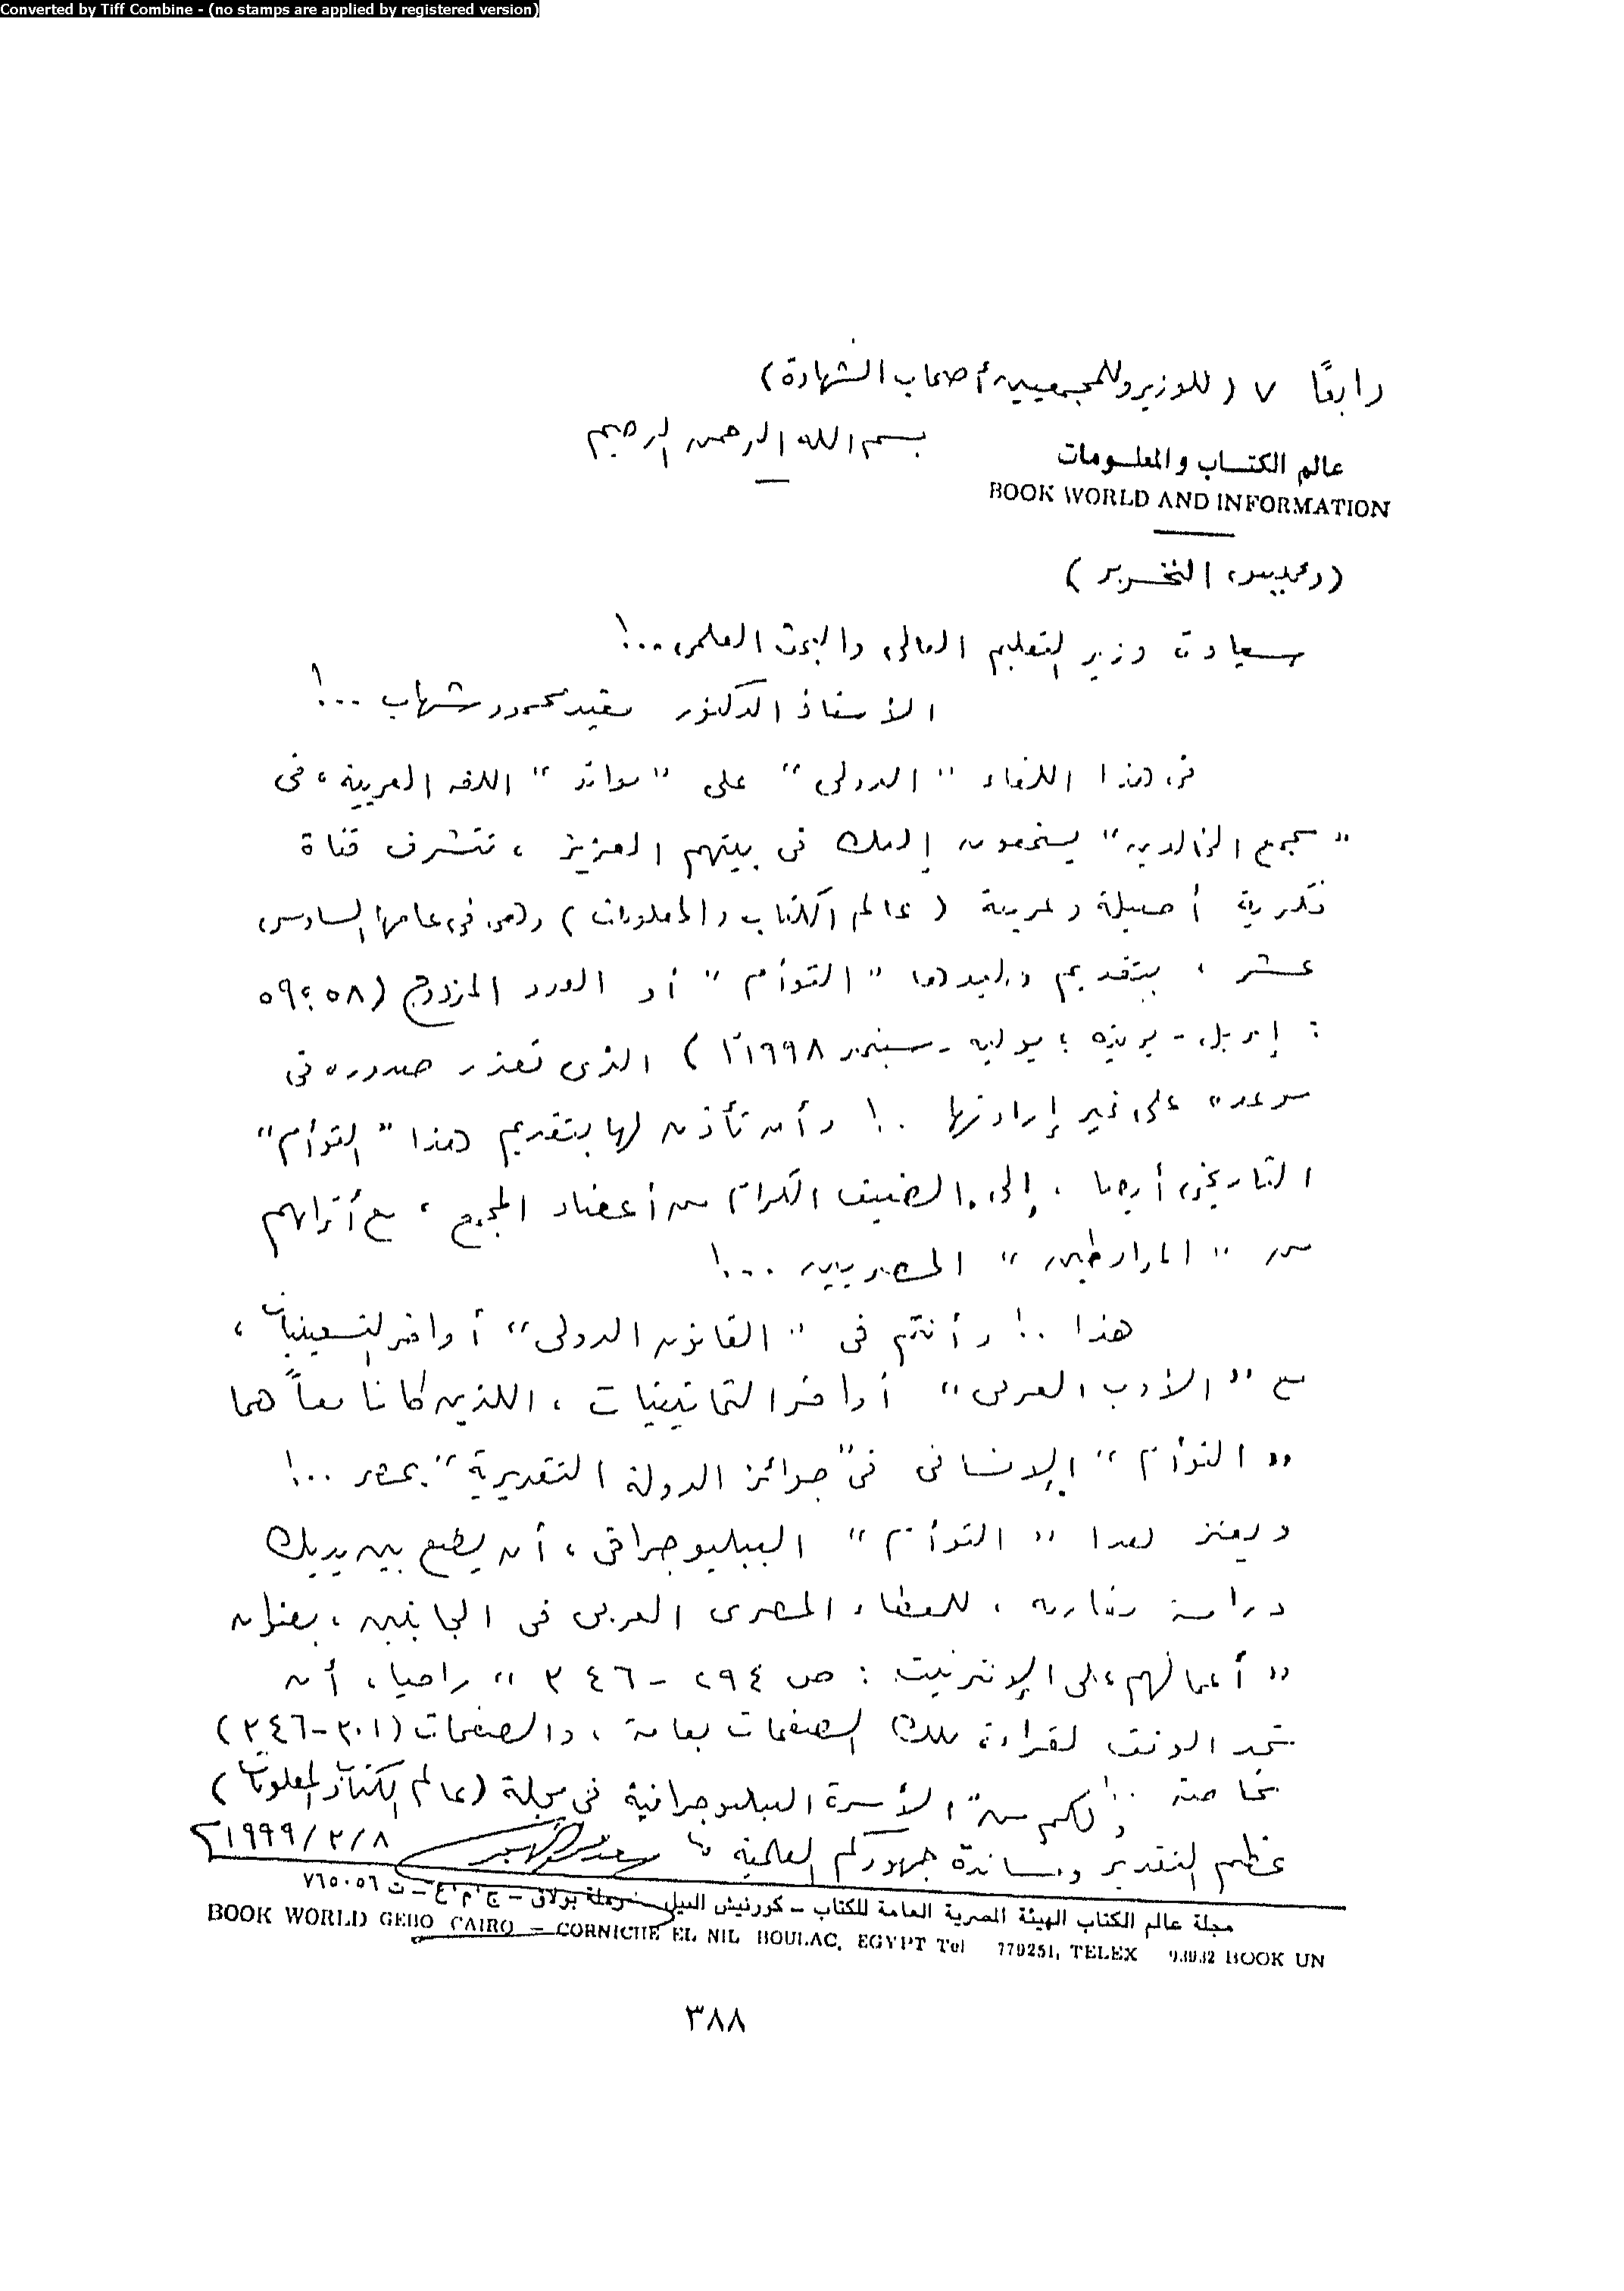 Converted by Tiff Combine - (no stamps are applied by registered version)
رابعًا ٧ (للوزير وللمجمعيين أصحاب الشهادة)
بسم الله الرحمن الرحيم
عالم الكتاب والمعلومات
BOOK WORLD AND INFORMATION
(رئيس التحرير)
سعادة وزير التعليم العالى والبحث العلمى ..!
الأستاذ الدكتور مفيد محمود شهاب ...!
فى هذا اللقاء "الدولى" على "موائد" اللغة العربية، فى
"مجمع الخالدين" يستمعون إليك فى بيتهم العزيز، تتشرف قناة
فكرية أصيلة وعربية (عالم الكتاب والمعلومات) وهى فى عامها السادس
عشر، بتقديم وليدها "التوأم" أو العدد المزدوج (٥٨؛ ٥٩
: إبريل - يونيه؛ يوليه - سبتمبر ١٩٩٨م) الذى تعذر صدوره فى
موعده على غير إرادتها ..! وأن تأذن لها بتقديم هذا "التوأم"
التاريخى أيضا، إلى الضيوف الكرام من أعضاء المجمع، مع أترابهم
من "المرابطين" المصريين ...!
هذا ..! وأنتم فى "القانون الدولى" أواخر التسعينيات،
مع "الأدب العربى" أواخر الثمانينيات، اللذين كانا معاً هما
"التوأم" الإنسانى فى "جوائز الدولة التقديرية" بمصر ...!
ويعتز هذا "التوأم" الببليوجرافى، أن يضع بين يديك
دراسة مقارنة، للعطاء المصرى العربى فى الجانبين، بعنوان
"أعمالهم على الإنترنيت: ص ٢٩٤ - ٣٤٦" راجيا، أن
تجد الوقت لقراءة تلك الصفحات بعامة، والصفحات (٣٠١-٣٤٦)
بخاصة ..! ولكم من "الأسرة الببليوجرافية فى مجلة (عالم الكتاب والمعلومات)
عظيم التقدير ومساندة جهودكم العلمية ١٩٩٩/٣/٨م
مجلة عالم الكتاب الهيئة المصرية العامة للكتاب – كورنيش النيل – رملة بولاق – ج٠م٠ع – ت ٧٦٥٠٥٦
BOOK WORLD GEBO CAIRO – CORNICHE EL NIL BOULAC, EGYPT Tel 779251, TELEX BOOK UN
٣٨٨